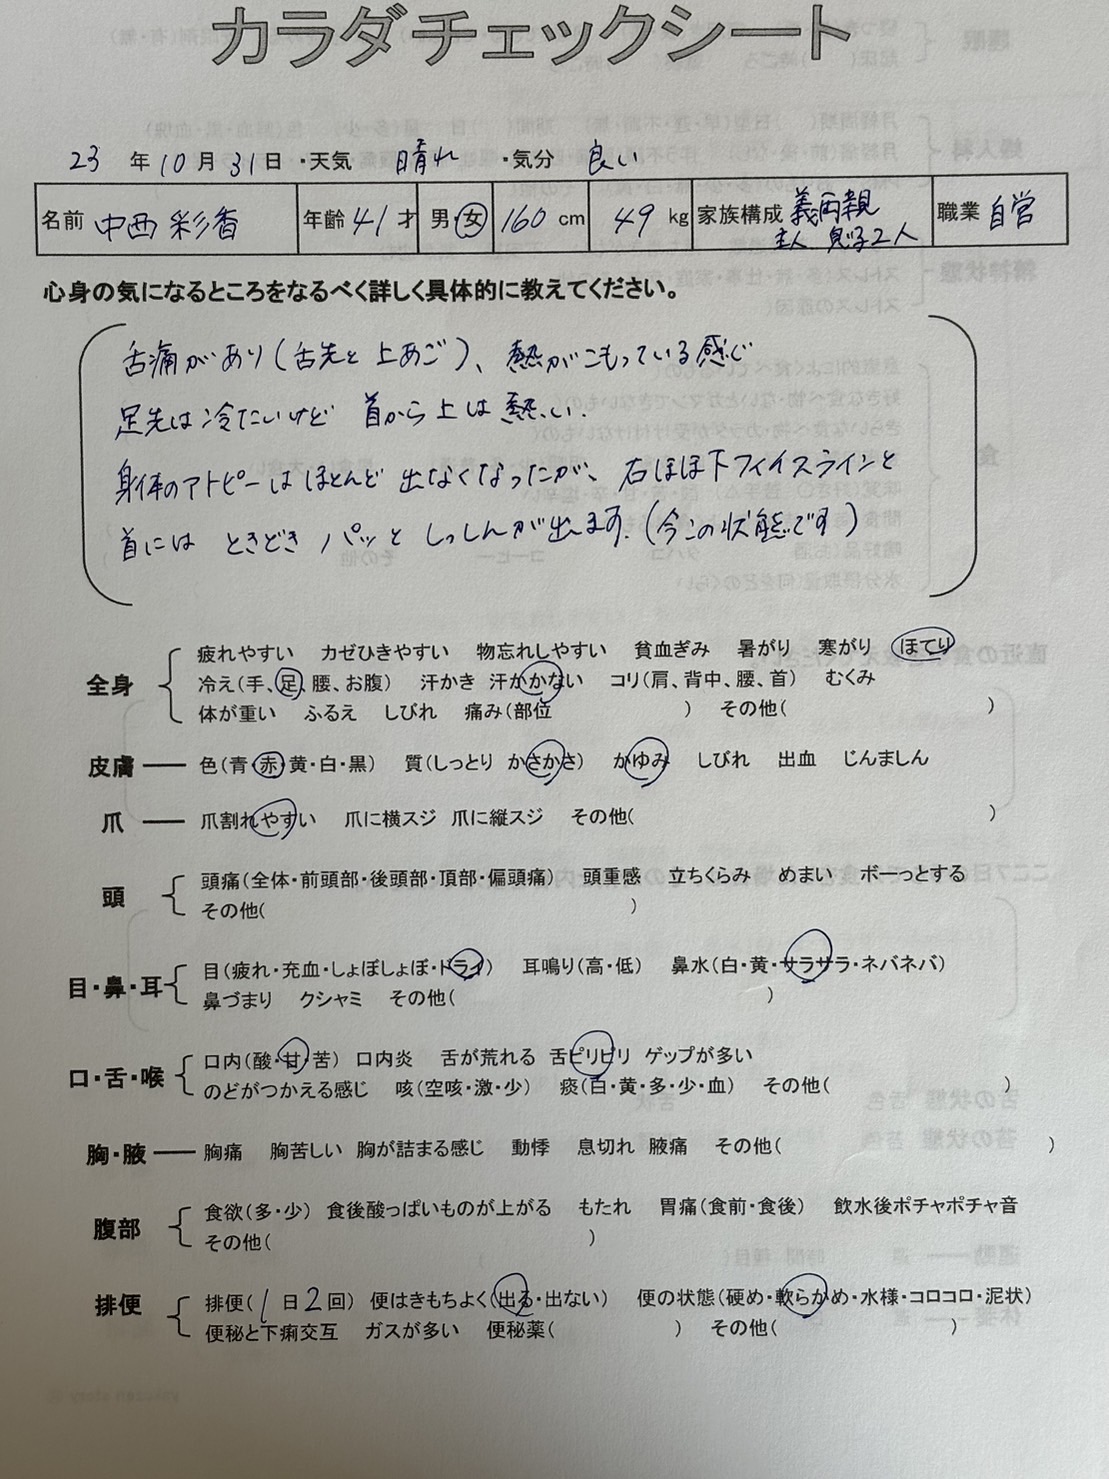 カラダチェックシート
23 年 10 月 31 日 ・天気 晴れ ・気分 良い
名前 中西 彩香 年齢 41 才 男・女 160 cm 49 kg 家族構成 義両親 主人 息子2人 職業 自営
心身の気になるところをなるべく詳しく具体的に教えてください。
舌痛があり(舌先と上あご)、熱がこもっている感じ
足先は冷たいけど 首から上は熱い.
身体のアトピーはほとんど 出なくなったが、右ほほ下フェイスラインと
首には ときどき パッと しっしんが出ます.(今この状態です)
全身 疲れやすい カゼひきやすい 物忘れしやすい 貧血ぎみ 暑がり 寒がり ほてり
冷え(手、足、腰、お腹) 汗かき 汗かかない コリ(肩、背中、腰、首) むくみ
体が重い ふるえ しびれ 痛み(部位 ) その他( )
皮膚 色(青・赤・黄・白・黒) 質(しっとり かさかさ) かゆみ しびれ 出血 じんましん
爪 爪割れやすい 爪に横スジ 爪に縦スジ その他( )
頭 頭痛(全体・前頭部・後頭部・頂部・偏頭痛) 頭重感 立ちくらみ めまい ボーっとする
その他( )
目・鼻・耳 目(疲れ・充血・しょぼしょぼ・ドライ) 耳鳴り(高・低) 鼻水(白・黄・サラサラ・ネバネバ)
鼻づまり クシャミ その他( )
口・舌・喉 口内(酸・甘・苦) 口内炎 舌が荒れる 舌ピリピリ ゲップが多い
のどがつかえる感じ 咳(空咳・激・少) 痰(白・黄・多・少・血) その他( )
胸・腋 胸痛 胸苦しい 胸が詰まる感じ 動悸 息切れ 腋痛 その他( )
腹部 食欲(多・少) 食後酸っぱいものが上がる もたれ 胃痛(食前・食後) 飲水後ポチャポチャ音
その他( )
排便 排便( 1 日 2 回) 便はきもちよく(出る・出ない) 便の状態(硬め・軟らかめ・水様・コロコロ・泥状)
便秘と下痢交互 ガスが多い 便秘薬( ) その他( )